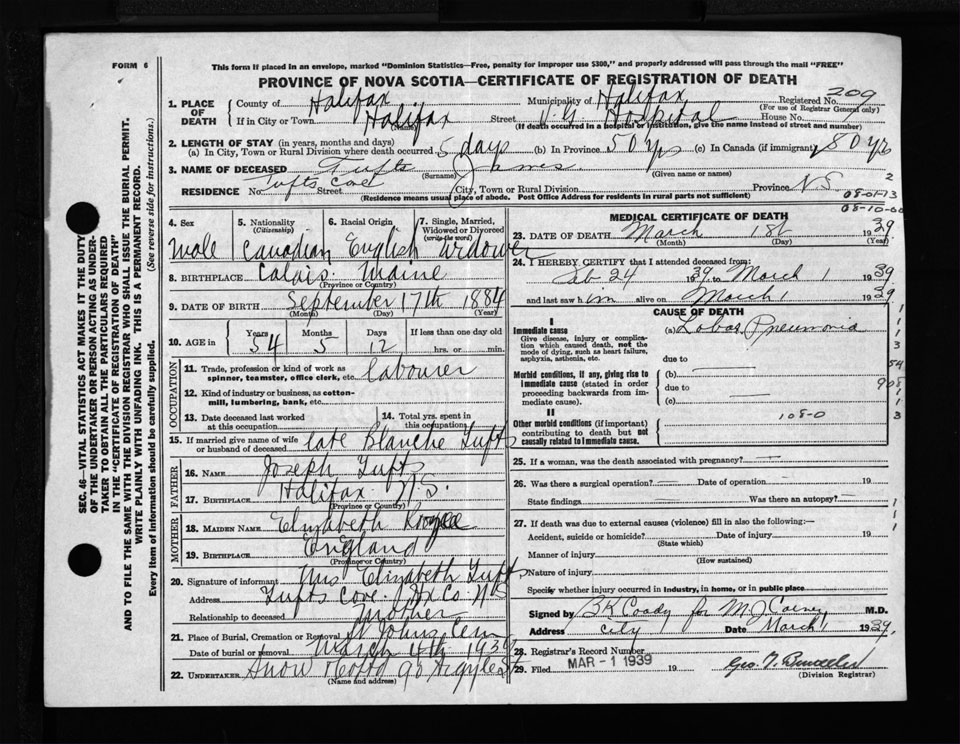 FORM 6
This form if placed in an envelope, marked "Dominion Statistics—Free," and properly addressed will pass through the mail "FREE"
PROVINCE OF NOVA SCOTIA—CERTIFICATE OF REGISTRATION OF DEATH
1. PLACE OF DEATH
County of Halifax Municipality of Halifax Registered No. 209
(For use of Registrar General only)
If in City or Town Halifax Street V.G. Hospital House No.
(Name) (If death occurred in a hospital or institution, give the name instead of street and number)
2. LENGTH OF STAY (in years, months and days)
(a) In City, Town or Rural Division where death occurred 5 days (b) In Province 50 yrs (c) In Canada (if immigrant) 50 yrs
3. NAME OF DECEASED Tufts James
(Surname) (Given name or names)
RESIDENCE No. Tufts Cove Street City, Town or Rural Division Province N.S.
(Residence means usual place of abode. Post Office Address for residents in rural parts not sufficient)
2
08-01-13
4. Sex
male
5. Nationality (Citizenship)
Canadian
6. Racial Origin
English
7. Single, Married, Widowed or Divorced (write the word)
Widower
8. BIRTHPLACE Calais. Maine
(Province or Country)
9. DATE OF BIRTH September 17th 1884
(Month) (Day) (Year)
10. AGE in
Years 54
Months 5
Days 12
If less than one day old
hrs. or min.
OCCUPATION
11. Trade, profession or kind of work as spinner, teamster, office clerk, etc. labourer
12. Kind of industry or business, as cotton-mill, lumbering, bank, etc.
13. Date deceased last worked at this occupation
14. Total yrs. spent in this occupation
15. If married give name of wife or husband of deceased late Blanche Tufts
FATHER
16. NAME Joseph Tufts
17. BIRTHPLACE Halifax N.S.
(Province or Country)
MOTHER
18. MAIDEN NAME Elizabeth
19. BIRTHPLACE England
(Province or Country)
20. Signature of informant Mrs Elizabeth Tufts
Address Tufts Cove. Hx Co. N.S.
Relationship to deceased Mother
21. Place of Burial, Cremation or Removal St Johns Cem
Date of burial or removal March 4th. 1939
22. UNDERTAKER Snow 90 Argyle St
(Name and address)
MEDICAL CERTIFICATE OF DEATH
23. DATE OF DEATH March 1st 1939
(Month) (Day) (Year)
24. I HEREBY CERTIFY that I attended deceased from:
Feb 24 1939 to March 1 1939
and last saw him alive on March 1 1939
CAUSE OF DEATH
I
Immediate cause (a) Lobar Pneumonia
Give disease, injury or complication which caused death, not the mode of dying, such as heart failure, asphyxia, asthenia, etc.
due to
Morbid conditions, if any, giving rise to immediate cause (stated in order proceeding backwards from immediate cause).
(b)
due to
(c)
II
Other morbid conditions (if important) contributing to death but not causally related to immediate cause.
108-0
1
1
1
3
54
908
1
1
3
25. If a woman, was the death associated with pregnancy? —
26. Was there a surgical operation? — Date of operation — 19
State findings Was there an autopsy? —
27. If death was due to external causes (violence) fill in also the following:—
Accident, suicide or homicide? Date of injury 19
(State which)
Manner of injury
(How sustained)
Nature of injury
Specify whether injury occurred in Industry, in home, or in public place
Signed by B K Coady for M.D.
Address City Date March 1 1939.
28. Registrar's Record Number
29. Filed MAR - 1 1939 19
(Division Registrar)
SEC. 46—VITAL STATISTICS ACT MAKES IT THE DUTY
OF THE UNDERTAKER OR PERSON ACTING AS UNDER-
TAKER TO OBTAIN ALL THE PARTICULARS REQUIRED
IN THE "CERTIFICATE OF REGISTRATION OF DEATH"
AND TO FILE THE SAME WITH THE DIVISION REGISTRAR WHO SHALL ISSUE THE BURIAL PERMIT.
WRITE PLAINLY WITH UNFADING INK. THIS IS A PERMANENT RECORD.
Every item of information should be carefully supplied. (See reverse side for instructions.)